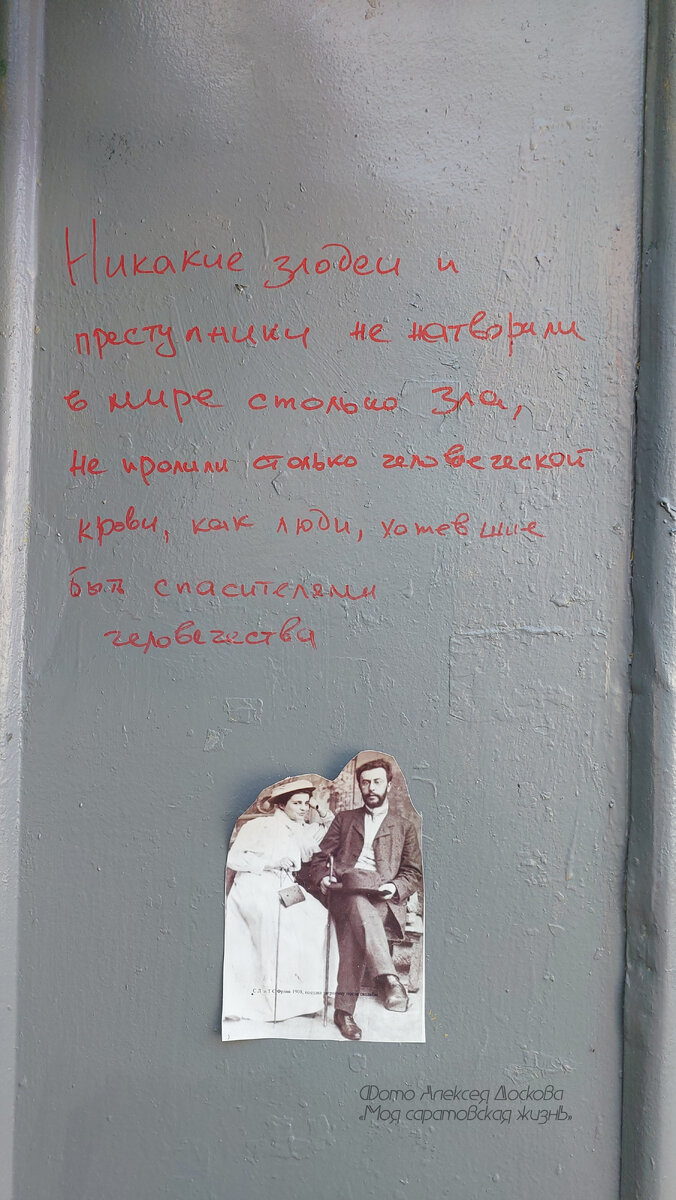 Никакие злодеи и
преступники не натворили
в мире столько зла,
не пролили столько человеческой
крови, как люди, хотевшие
быть спасителями
человечества
С.Л. и Т.С. Франк 1908,
Фото Алексея Доскова
«Моя саратовская жизнь»